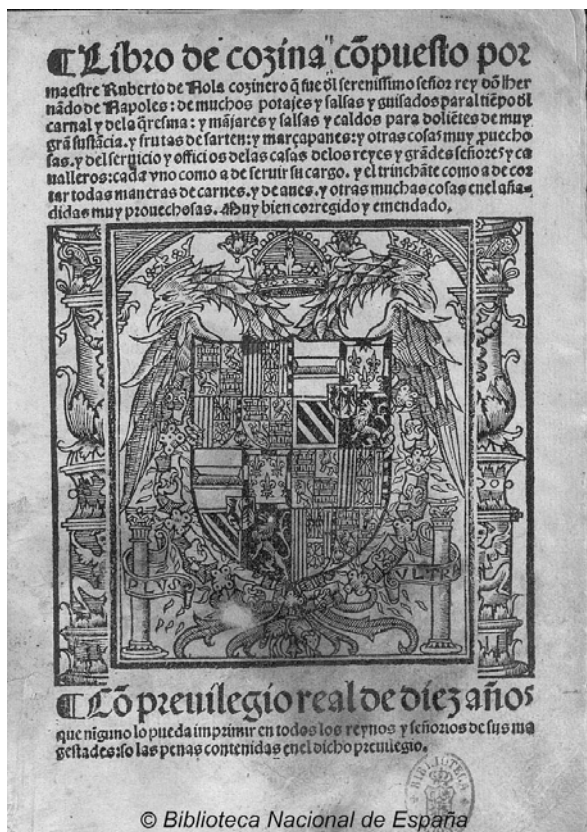 ¶Libro de cozina cõpuesto por
maestre Ruberto de Nola cozinero q̃ fue ðl serenissimo señor rey dõ Iher
nãdo de Napoles: de muchos potajes y salsas y guisados para el tiẽpo ðl
carnal y dela q̃resma: y mãjares y salsas y caldos para doliẽtes de muy
grã sustãcia. y frutas de sarten: y marçapanes: y otras cosas muy ꝓuecho
sas. y del seruicio y officios delas casas delos reyes y grãdes señores y ca
ualleros: cada vno como a de seruir su cargo. y el trinchãte como a de cor
tar todas maneras de carnes. y de aues. y otras muchas cosas enel aña-
didas muy prouechosas. Muy bien corregido y emendado.
PLUS
VLTR
¶Cõ preuilegio real de diez años
que nĩguno lo pueda imprimir en todos los reynos y señorios de sus ma
gestades: so las penas contenidas enel dicho preuilegio.
BIBLIOTECA
© Biblioteca Nacional de España